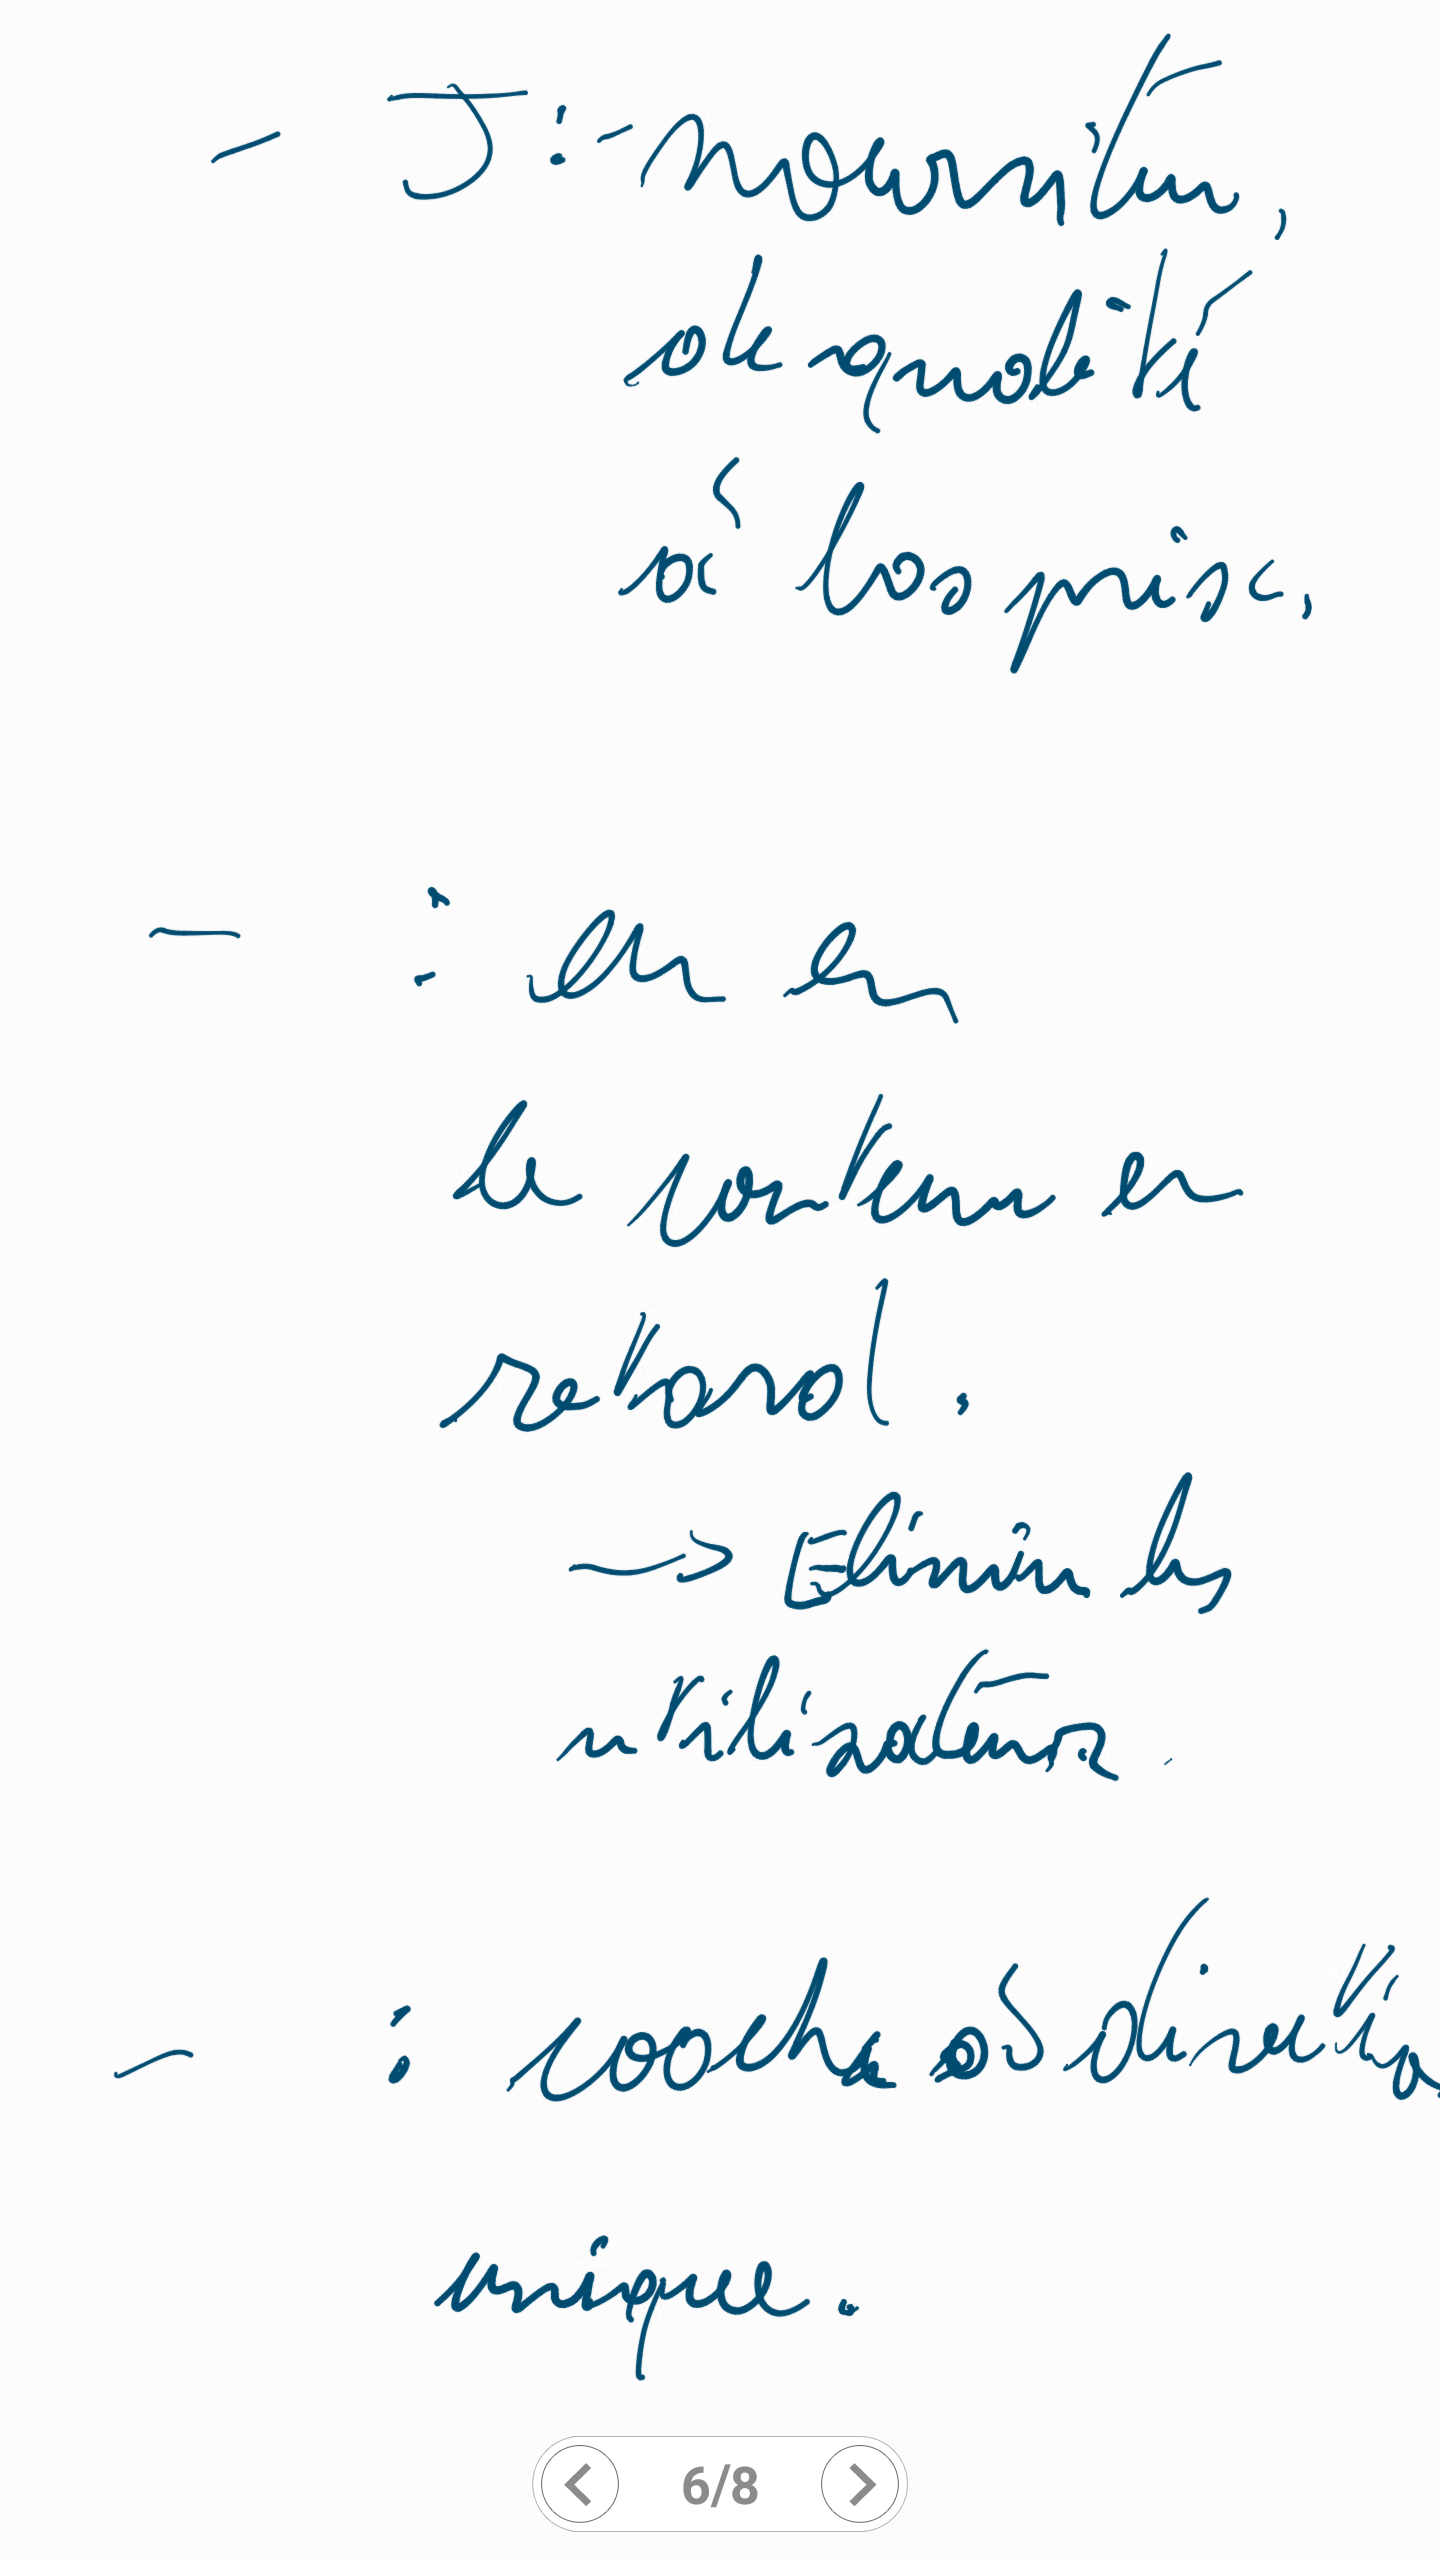 - J : - nourriture,
de qualité
à bas prix.
- : en en
le contenu en
retard.
→ Elimine les
utilisateurs.
- : coache à direction
unique.
6/8